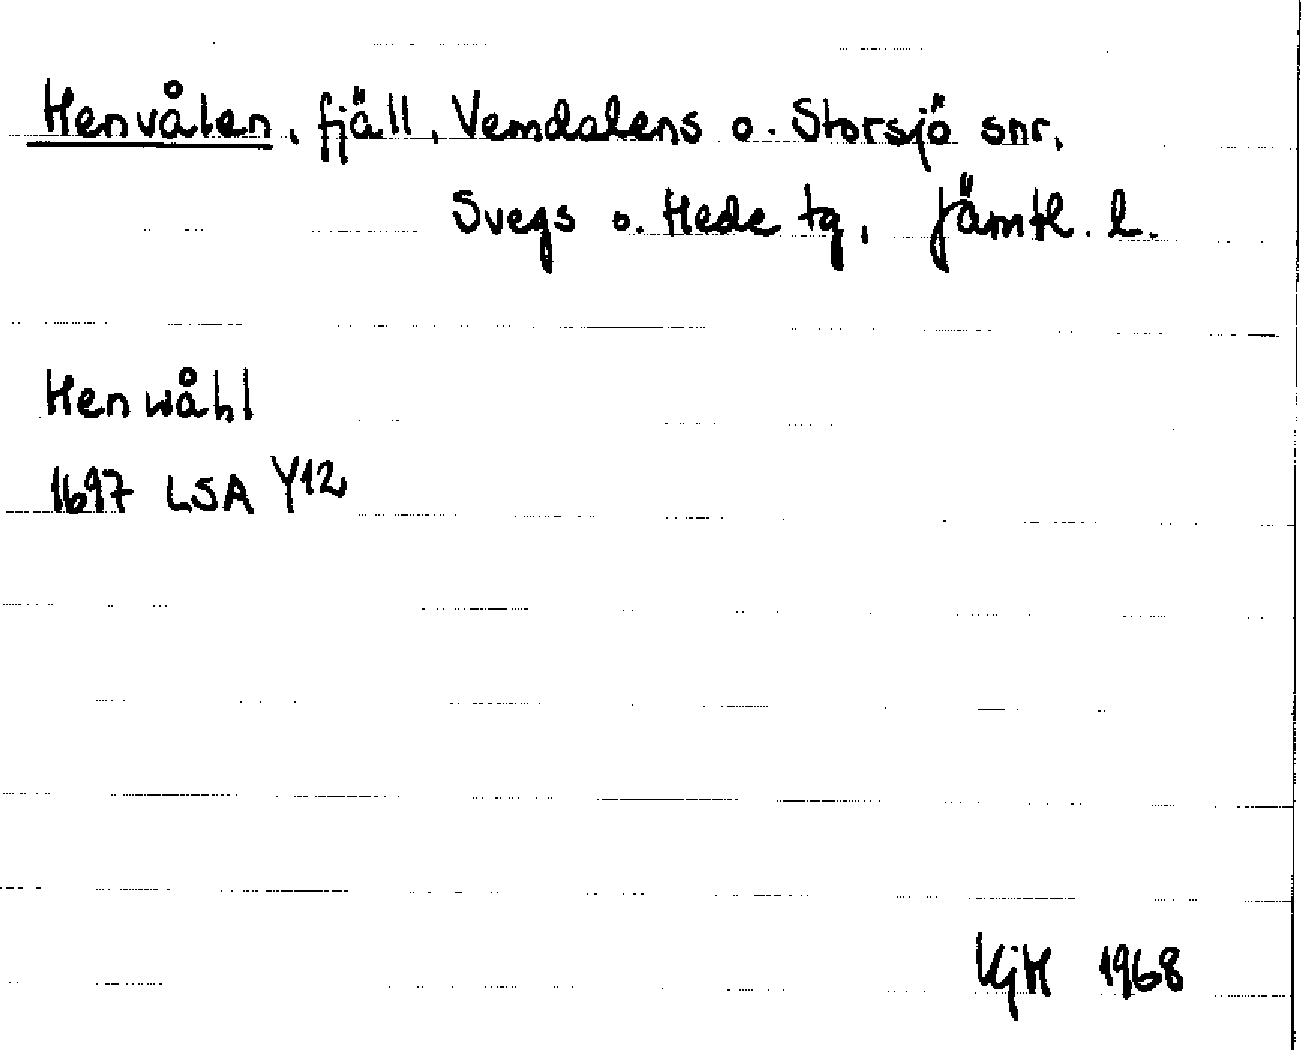 Henvålen, fjäll, Vemdalens o. Storsjö snr,
Svegs o. Hede tg, Jämtl. l.
Henwåhl
1697 LSA Y12
KjH 1968